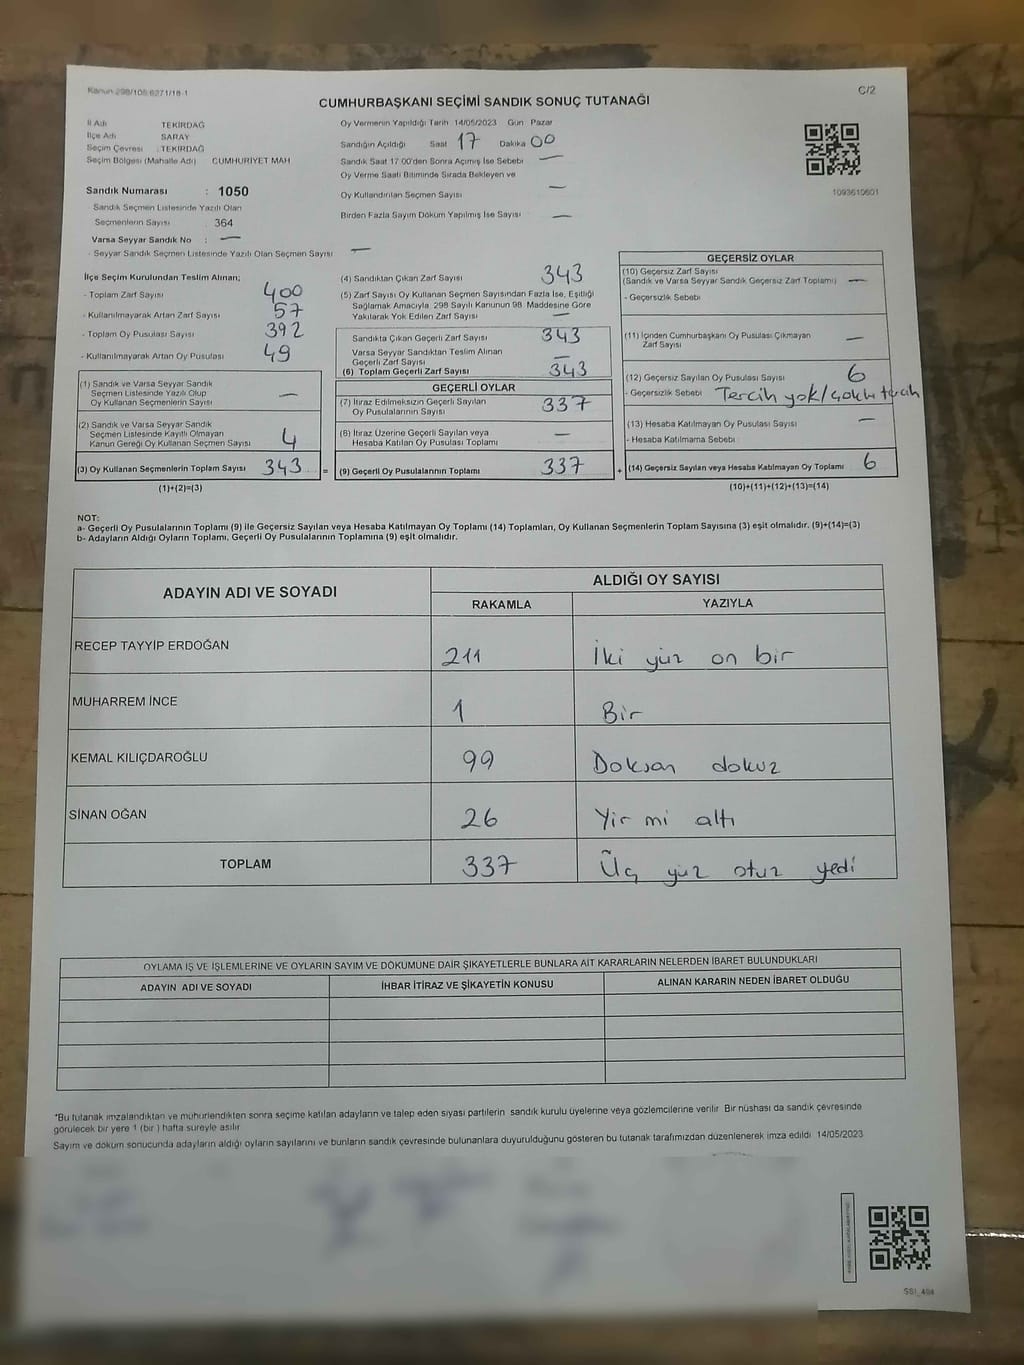 Kanun 298/105;6271/18-1
C/2
CUMHURBAŞKANI SEÇİMİ SANDIK SONUÇ TUTANAĞI
İl Adı TEKİRDAĞ
İlçe Adı SARAY
Seçim Çevresi : TEKİRDAĞ
Seçim Bölgesi (Mahalle Adı) CUMHURİYET MAH
Sandık Numarası : 1050
- Sandık Seçmen Listesinde Yazılı Olan
Seçmenlerin Sayısı : 364
Varsa Seyyar Sandık No : —
- Seyyar Sandık Seçmen Listesinde Yazılı Olan Seçmen Sayısı —
Oy Vermenin Yapıldığı Tarih 14/05/2023 Gün Pazar
Sandığın Açıldığı Saat 17 Dakika 00
Sandık Saat 17:00'den Sonra Açılmış İse Sebebi —
Oy Verme Saati Bitiminde Sırada Bekleyen ve
Oy Kullandırılan Seçmen Sayısı —
Birden Fazla Sayım Döküm Yapılmış İse Sayısı —
1093610601
İlçe Seçim Kurulundan Teslim Alınan;
- Toplam Zarf Sayısı 400
- Kullanılmayarak Artan Zarf Sayısı 57
- Toplam Oy Pusulası Sayısı 392
- Kullanılmayarak Artan Oy Pusulası 49
(1) Sandık ve Varsa Seyyar Sandık
Seçmen Listesinde Yazılı Olup
Oy Kullanan Seçmenlerin Sayısı —
(2) Sandık ve Varsa Seyyar Sandık
Seçmen Listesinde Kayıtlı Olmayan
Kanun Gereği Oy Kullanan Seçmen Sayısı 4
(3) Oy Kullanan Seçmenlerin Toplam Sayısı 343 =
(1)+(2)=(3)
(4) Sandıktan Çıkan Zarf Sayısı 343
(5) Zarf Sayısı Oy Kullanan Seçmen Sayısından Fazla İse, Eşitliği
Sağlamak Amacıyla 298 Sayılı Kanunun 98. Maddesine Göre
Yakılarak Yok Edilen Zarf Sayısı —
Sandıkta Çıkan Geçerli Zarf Sayısı 343
Varsa Seyyar Sandıktan Teslim Alınan
Geçerli Zarf Sayısı —
(6) Toplam Geçerli Zarf Sayısı 343
GEÇERLİ OYLAR
(7) İtiraz Edilmeksizin Geçerli Sayılan
Oy Pusulalarının Sayısı 337
(8) İtiraz Üzerine Geçerli Sayılan veya
Hesaba Katılan Oy Pusulası Toplamı —
(9) Geçerli Oy Pusulalarının Toplamı 337 +
GEÇERSİZ OYLAR
(10) Geçersiz Zarf Sayısı
(Sandık ve Varsa Seyyar Sandık Geçersiz Zarf Toplamı) —
- Geçersizlik Sebebi
(11) İçinden Cumhurbaşkanı Oy Pusulası Çıkmayan
Zarf Sayısı —
(12) Geçersiz Sayılan Oy Pusulası Sayısı 6
- Geçersizlik Sebebi Tercih yok/çoklu tercih
(13) Hesaba Katılmayan Oy Pusulası Sayısı —
- Hesaba Katılmama Sebebi
(14) Geçersiz Sayılan veya Hesaba Katılmayan Oy Toplamı 6
(10)+(11)+(12)+(13)=(14)
NOT:
a- Geçerli Oy Pusulalarının Toplamı (9) ile Geçersiz Sayılan veya Hesaba Katılmayan Oy Toplamı (14) Toplamları, Oy Kullanan Seçmenlerin Toplam Sayısına (3) eşit olmalıdır. (9)+(14)=(3)
b- Adayların Aldığı Oyların Toplamı, Geçerli Oy Pusulalarının Toplamına (9) eşit olmalıdır.
ADAYIN ADI VE SOYADI
ALDIĞI OY SAYISI
RAKAMLA YAZIYLA
RECEP TAYYİP ERDOĞAN 211 İki yüz on bir
MUHARREM İNCE 1 Bir
KEMAL KILIÇDAROĞLU 99 Doksan dokuz
SİNAN OĞAN 26 Yirmi altı
TOPLAM 337 Üç yüz otuz yedi
OYLAMA İŞ VE İŞLEMLERİNE VE OYLARIN SAYIM VE DÖKÜMÜNE DAİR ŞİKAYETLERLE BUNLARA AİT KARARLARIN NELERDEN İBARET BULUNDUKLARI
ADAYIN ADI VE SOYADI İHBAR İTİRAZ VE ŞİKAYETİN KONUSU ALINAN KARARIN NEDEN İBARET OLDUĞU
*Bu tutanak imzalandıktan ve mühürlendikten sonra seçime katılan adayların ve talep eden siyasi partilerin sandık kurulu üyelerine veya gözlemcilerine verilir. Bir nüshası da sandık çevresinde
görülecek bir yere 1 (bir) hafta süreyle asılır.
Sayım ve döküm sonucunda adayların aldığı oyların sayılarını ve bunların sandık çevresinde bulunanlara duyurulduğunu gösteren bu tutanak tarafımızdan düzenlenerek imza edildi. 14/05/2023
SSI_494